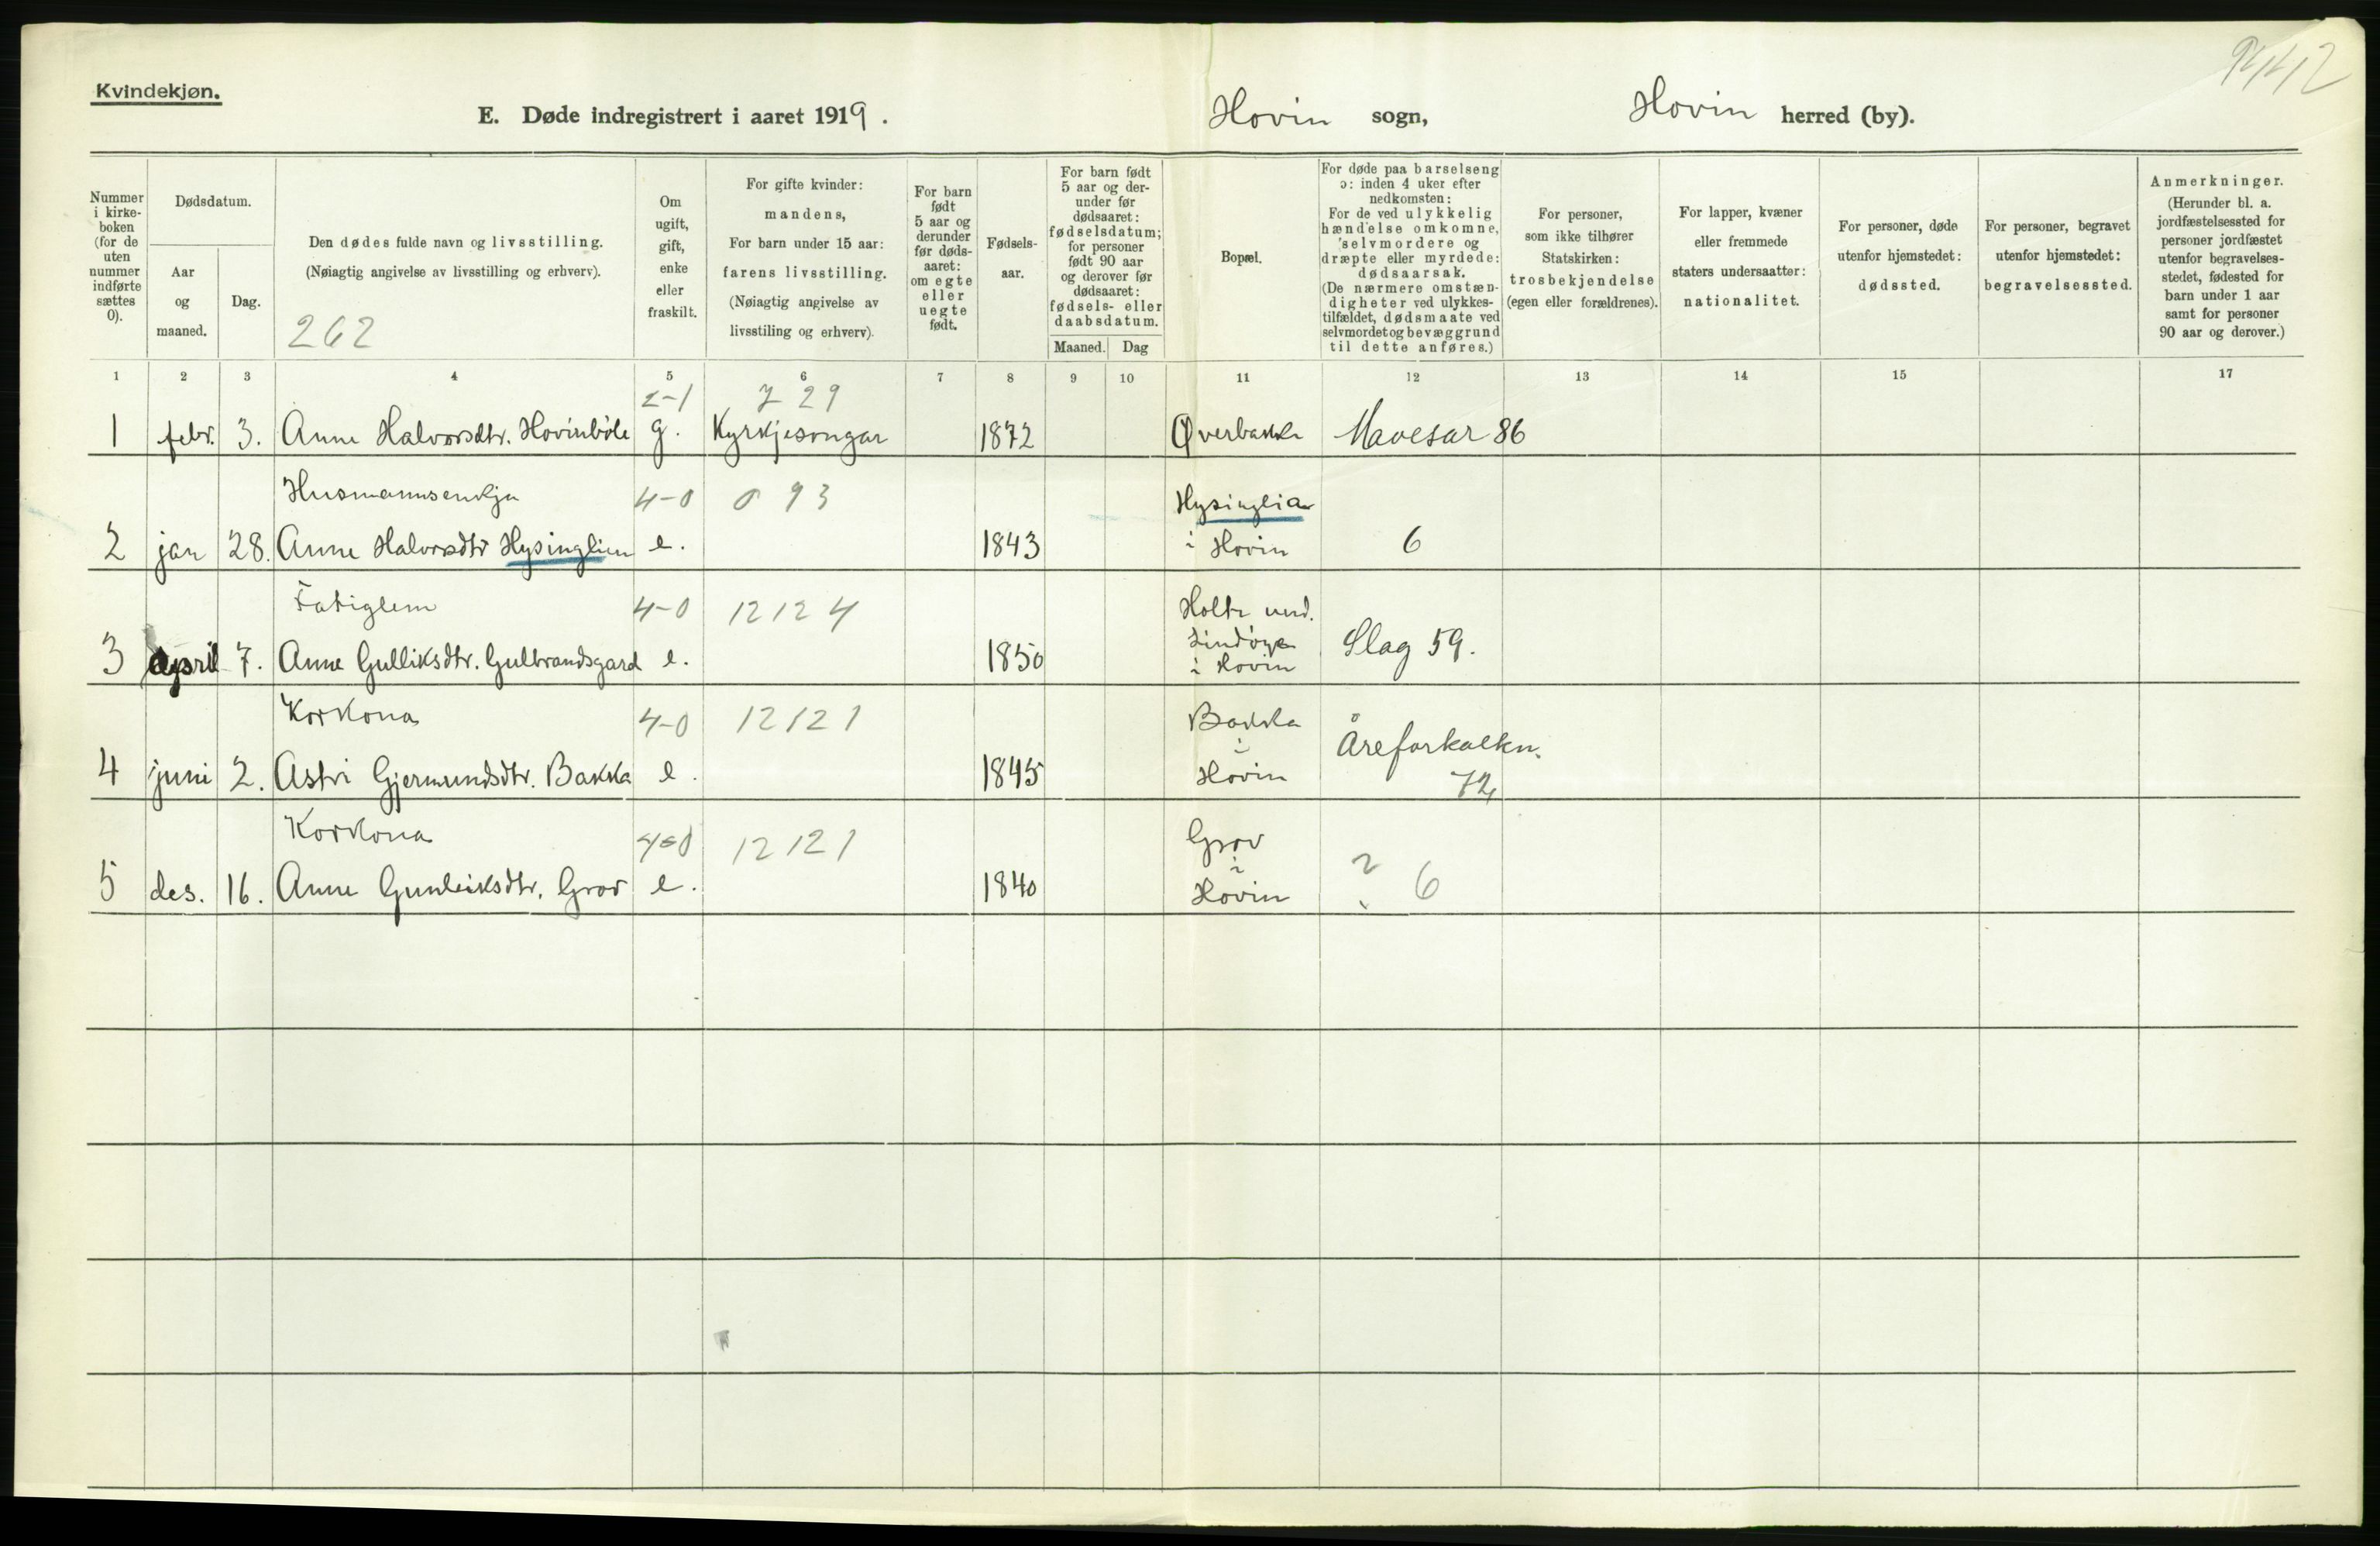 9412
Kvindekjøn.
E. Døde indregistrert i aaret 1919.
Hovin sogn, Hovin herred (by).
Nummer i kirke- boken (for de uten nummer indførte sættes 0).
Dødsdatum.
Aar og maaned.
Dag.
Den dødes fulde navn og livsstilling.
(Nøiagtig angivelse av livsstilling og erhverv).
262
Om ugift, gift, enke eller fraskilt.
For gifte kvinder:
mandens,
For barn under 15 aar:
farens livsstilling.
(Nøiagtig angivelse av
livsstiling og erhverv).
For barn født 5 aar og derunder før døds- aaret: om egte eller uegte født.
Fødsels- aar.
For barn født 5 aar og der- under før dødsaaret: fødselsdatum; for personer født 90 aar og derover før dødsaaret: fødsels- eller daabsdatum.
Maaned. Dag
Bopæl.
For døde paa barselseng ɔ: inden 4 uker efter nedkomsten:
For de ved ulykkelig hændelse omkomne, selvmordere og dræpte eller myrdede: dødsaarsak.
(De nærmere omstæn- digheter ved ulykkes- tilfældet, dødsmaate ved selvmordet og bevæggrund til dette anføres.)
For personer, som ikke tilhører Statskirken: trosbekjendelse (egen eller forældrenes).
For lapper, kvæner eller fremmede staters undersaatter: nationalitet.
For personer, døde utenfor hjemstedet: dødssted.
For personer, begravet utenfor hjemstedet: begravelsessted.
Anmerkninger.
(Herunder bl. a. jordfæstelsessted for personer jordfæstet utenfor begravelses- stedet, fødested for barn under 1 aar samt for personer 90 aar og derover.)
1 2 3 4 5 6 7 8 9 10 11 12 13 14 15 17
2-1 7 29
1 febr. 3. Anne Halvorsdtr. Hovinbøle g. Kyrkjesongar 1872 Øverbakke Mavesar 86
Husmannsenkja 4-0 0 93 Hysinglia
2 jan 28. Anne Halvorsdtr Hysinglien e. 1843 i Hovin 6
Fatiglem 4-0 12 12 4 Holte und.
3 april 7. Anne Gulliksdtr. Gulbrandsgard e. 1850 i Hovin Slag 59.
Korkona 4-0 12 12 1 Bakka
4 juni 2. Astri Gjermundsdtr. Bakka e. 1845 i Hovin Åreforkalkn. 72
Korkona 4-0 12 12 1 Grov
5 des. 16. Anne Gunleiksdtr. Grov e. 1840 i Hovin ? 6